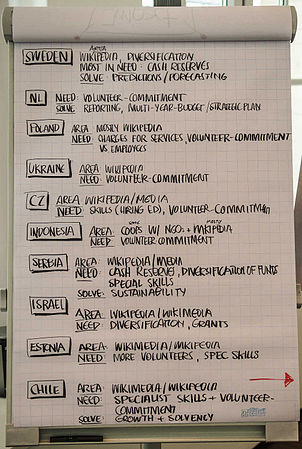 SWEDEN AREA WIKIPEDIA, DIVERSIFICATION
MOST IN NEED: CASH RESERVES
SOLVE: PREDICTIONS/FORECASTING
NL NEED: VOLUNTEER-COMMITMENT
SOLVE: REPORTING, MULTI-YEAR-BUDGET/STRATEGIC PLAN
POLAND AREA MOSTLY WIKIPEDIA
NEED: CHARGES FOR SERVICES, VOLUNTEER-COMMITMENT
VS EMPLOYEES
UKRAINE AREA WIKIPEDIA
NEED: VOLUNTEER-COMMITMENT
CZ AREA WIKIPEDIA/MEDIA
NEED SKILLS (HIRING ED), VOLUNTEER-COMMITMENT
INDONESIA AREA: COOPS W/ NGOs + WIKIPEDIA
NEED: VOLUNTEER COMMITMENT
SERBIA AREA: WIKIPEDIA/MEDIA
NEED: CASH RESERVE, DIVERSIFICATION OF FUNDS
SPECIAL SKILLS
SOLVE: SUSTAINABILITY
ISRAEL AREA: WIKIPEDIA/WIKIMEDIA
NEED: DIVERSIFICATION, GRANTS
ESTONIA AREA: WIKIMEDIA/WIKIPEDIA
NEED: MORE VOLUNTEERS, SPEC SKILLS
CHILE AREA: WIKIMEDIA/WIKIPEDIA
NEED: SPECIALIST SKILLS + VOLUNTEER-
COMMITMENT
SOLVE: GROWTH + SOLVENCY